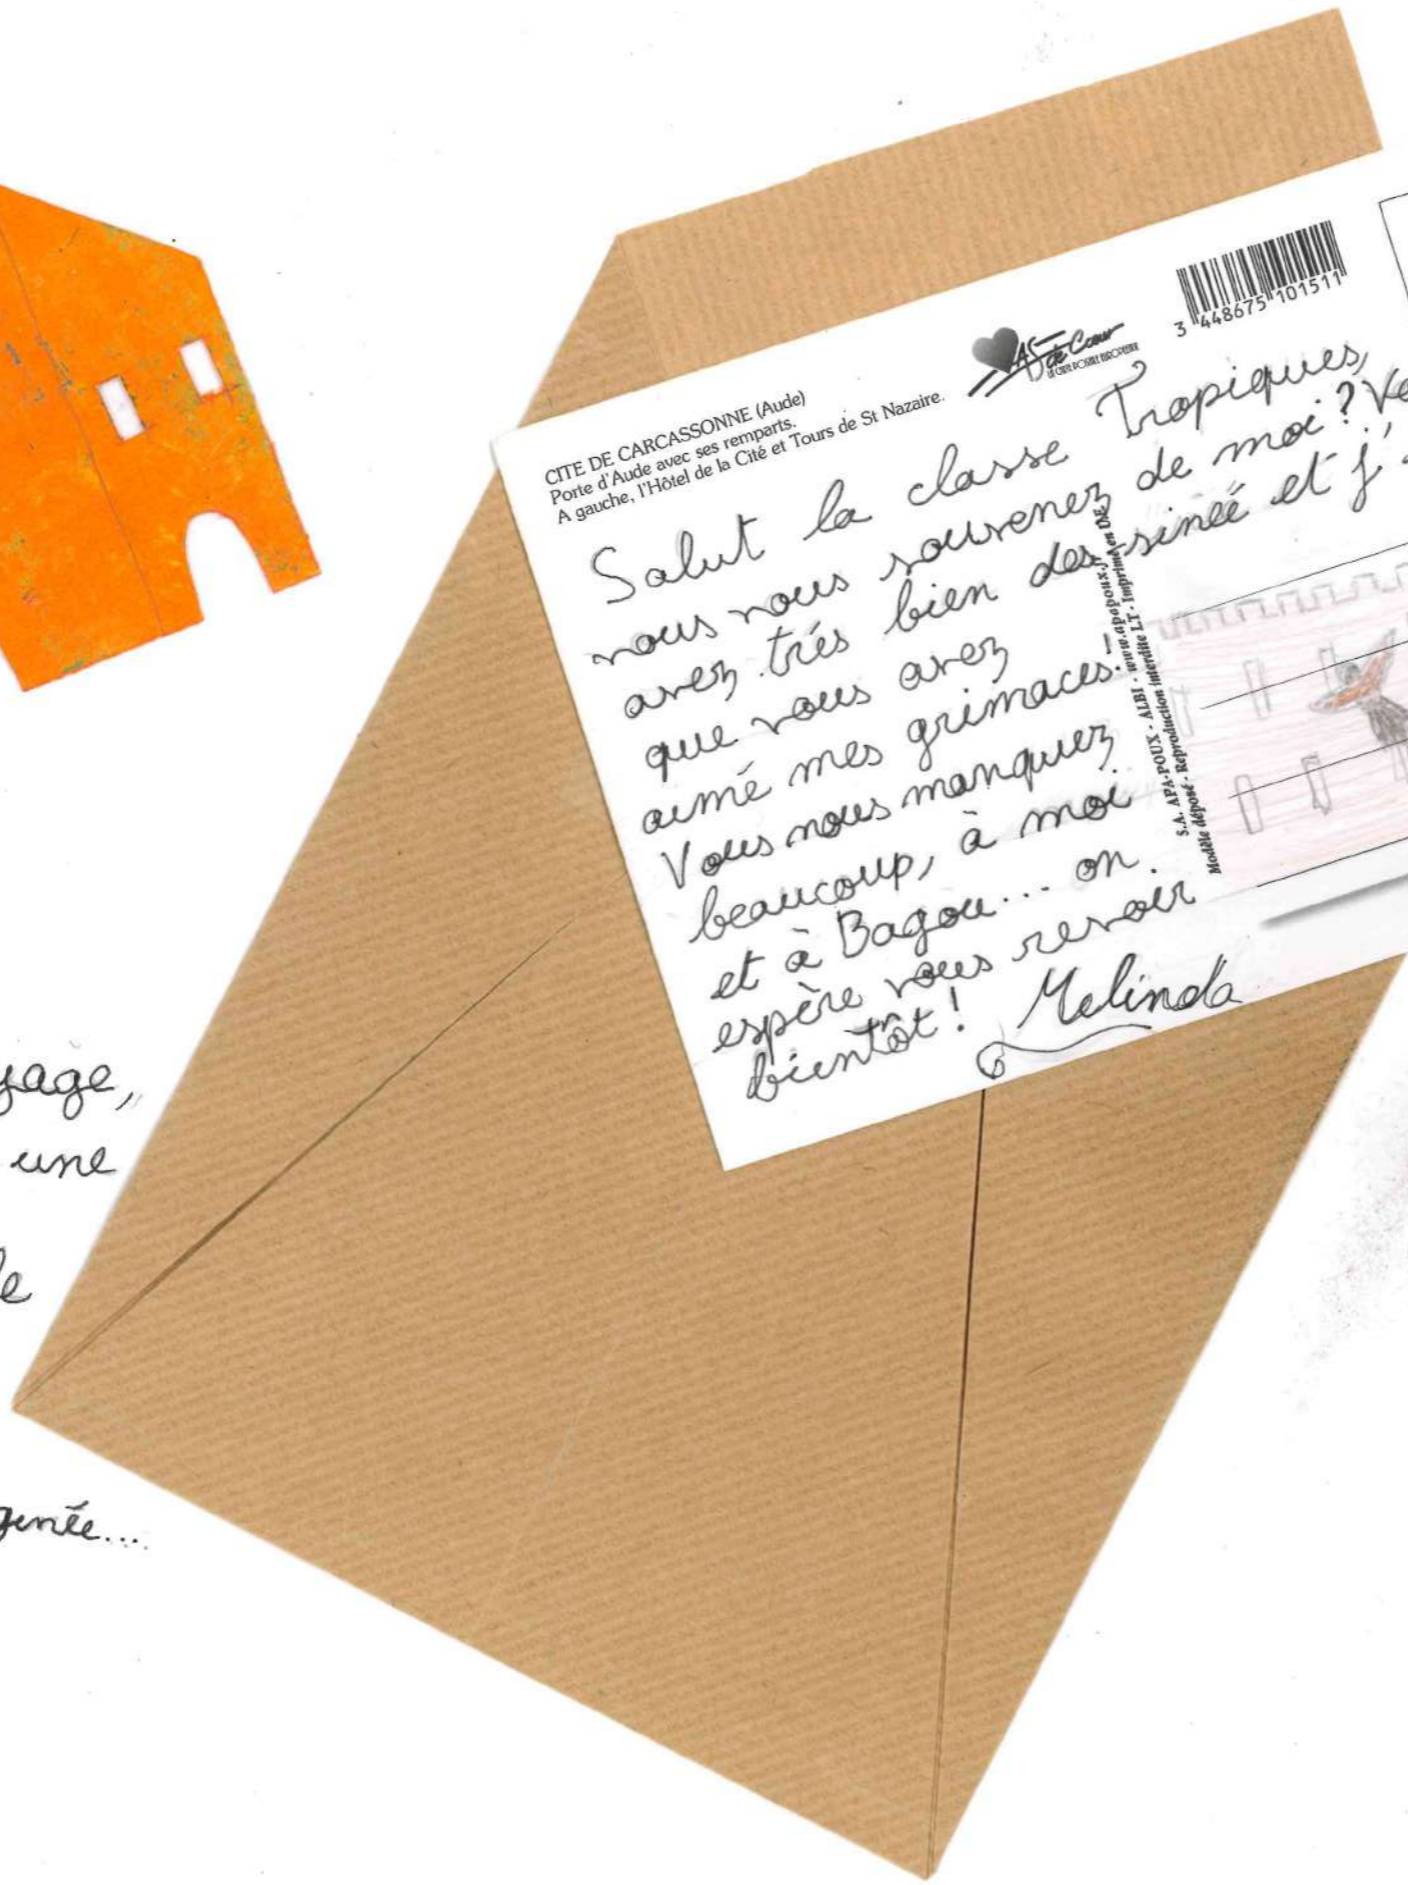 CITE DE CARCASSONNE (Aude)
Porte d'Aude avec ses remparts.
A gauche, l'Hôtel de la Cité et Tours de St Nazaire.
AS de Cœur
LA CARTE POSTALE EUROPEENNE
3 448675 101511
Salut la classe Tropiques,
vous vous souvenez de moi? Vo
avez très bien des-sineé et j'
que vous avez
aimé mes grimaces!
Vous nous manquez
beaucoup, à moi
et à Bagou... on
espère vous revoir
bientôt! Melinda
S.A. APA-POUX - ALBI - www.apapoux.
Modèle déposé - Reproduction interdite LT - Imprimé en DE
yage,
une
le
genée...